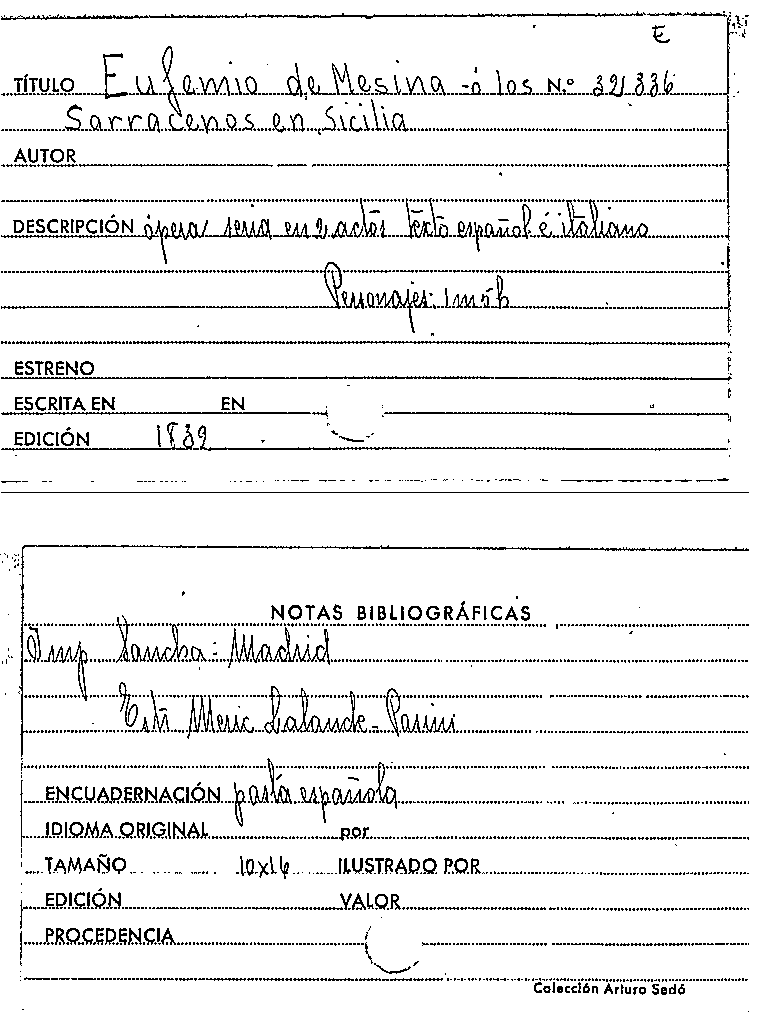 E
TÍTULO Eufemio de Mesina -ó los N.º 321336
Sarracenos en Sicilia
AUTOR
DESCRIPCIÓN ópera seria en 2 actos texto español é italiano
Personajes: 1m 5h
ESTRENO
ESCRITA EN EN
EDICIÓN 1832
NOTAS BIBLIOGRÁFICAS
Imp Sancha: Madrid
Estr Meric Lalande - Pasini
ENCUADERNACIÓN pasta española
IDIOMA ORIGINAL por
TAMAÑO 10x16 ILUSTRADO POR
EDICIÓN VALOR
PROCEDENCIA
Colección Arturo Sedó